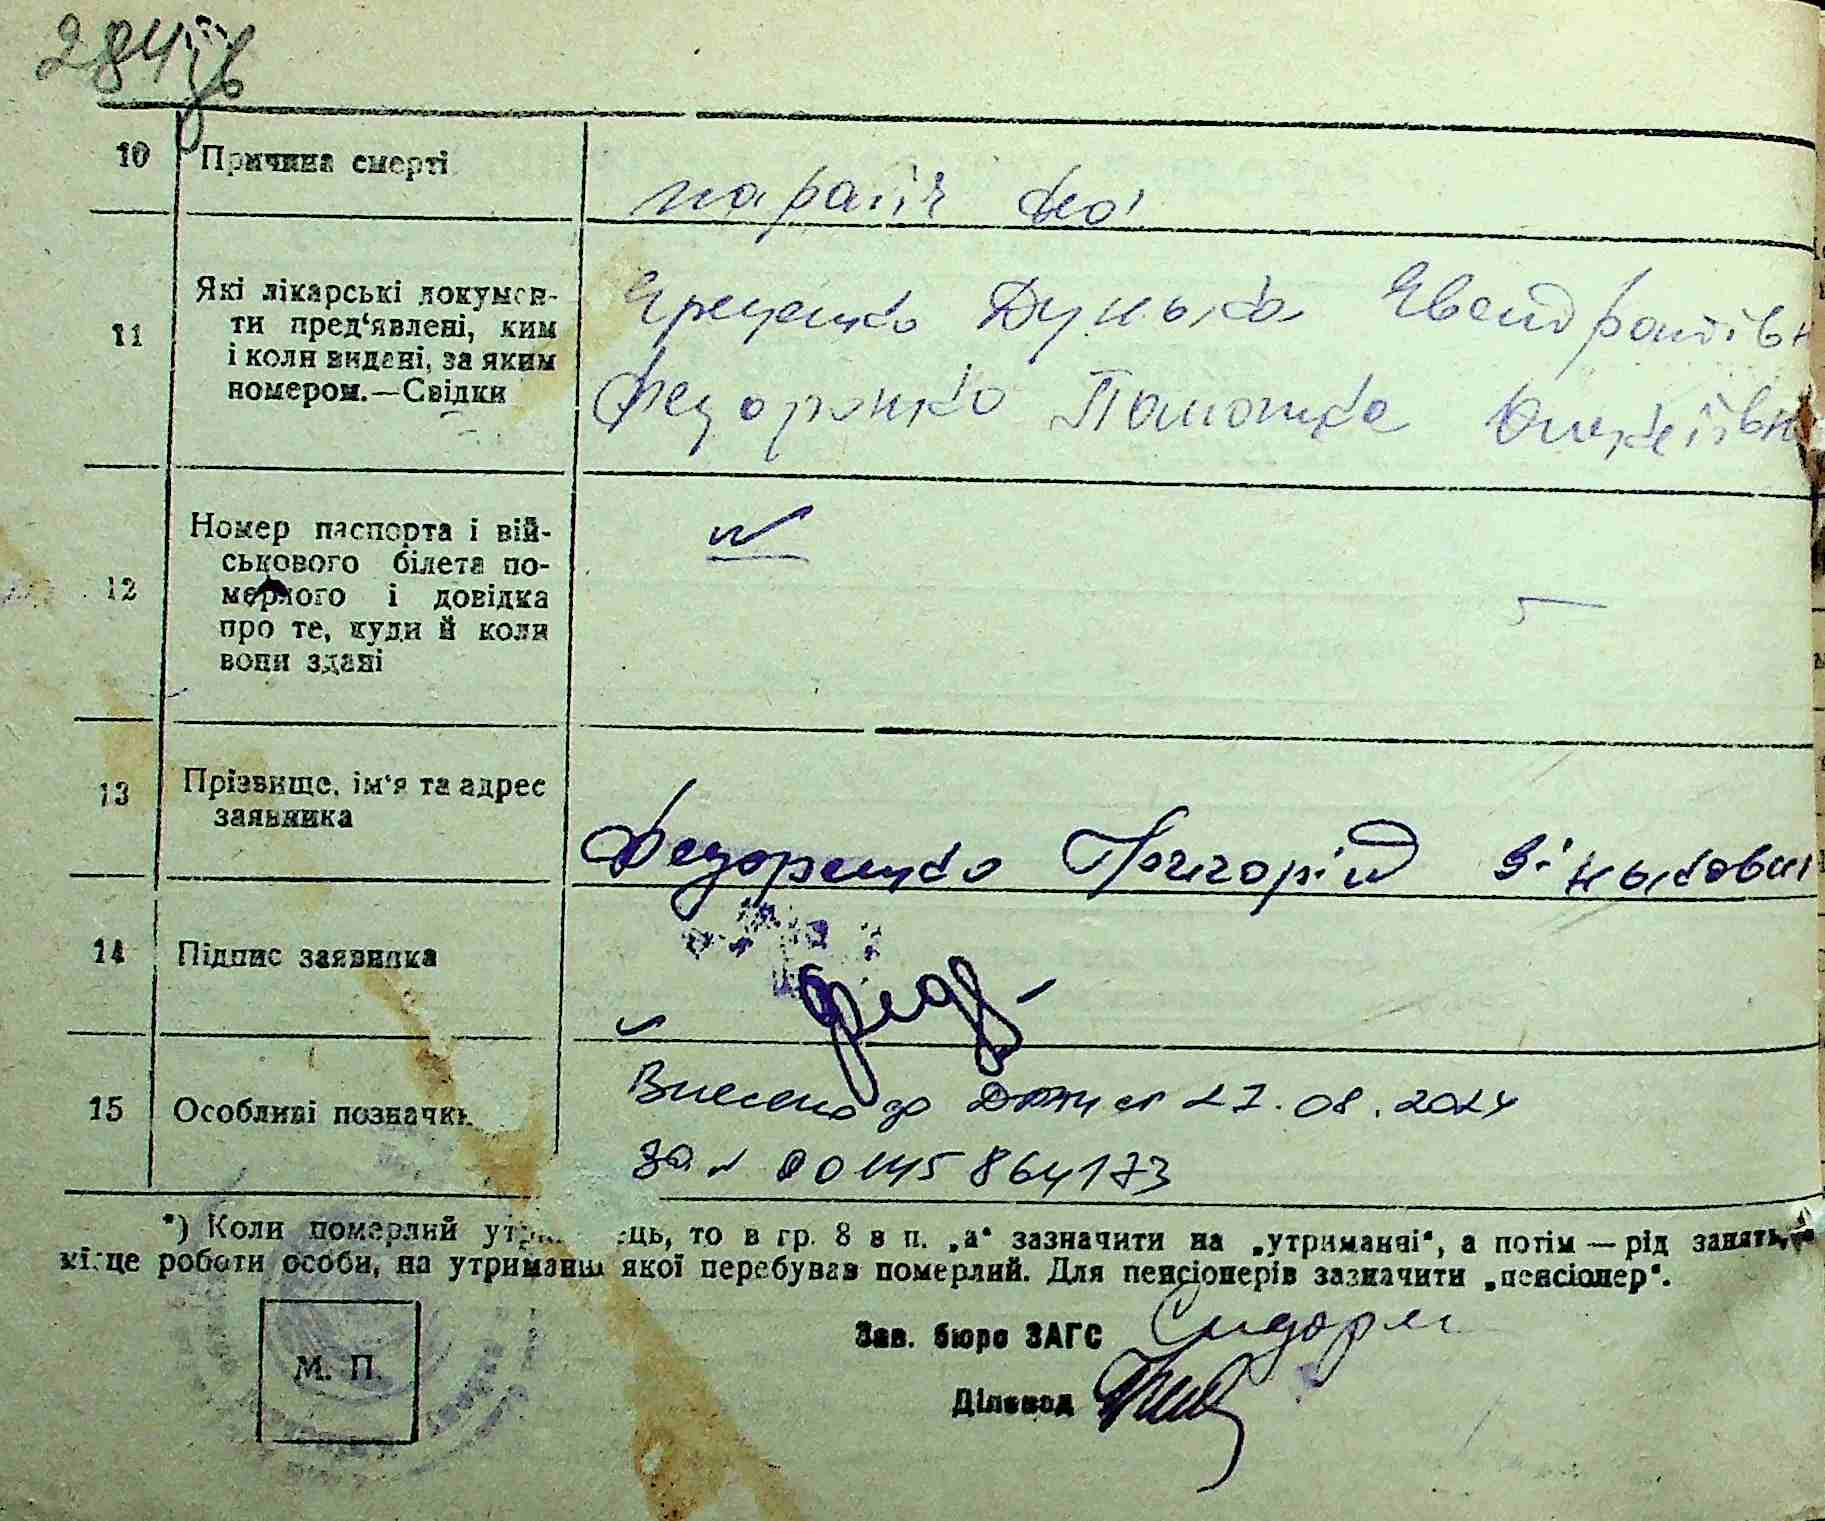 284 зв
10 Причина смерті
параліч
11 Які лікарські докумен-
ти пред'явлені, ким
і коли видані, за яким
номером.—Свідки
Грищенко Дунька
Федоренко
12 Номер паспорта і вій-
ськового білета по-
мерлого і довідка
про те, куди й коли
вони здані
13 Прізвище, ім'я та адрес
заявника
Федоренко Григорій
14 Підпис заявника
Фед
15 Особливі позначки
Внесено до 27.08.2024
за № 00145864173
*) Коли померлий ут ець, то в гр. 8 в п. „а" зазначити на „утриманні", а потім — рід занять,
місце роботи особи, на утриманні якої перебував померлий. Для пенсіонерів зазначити „пенсіонер".
М. П.
Зав. бюро ЗАГС
Діловод